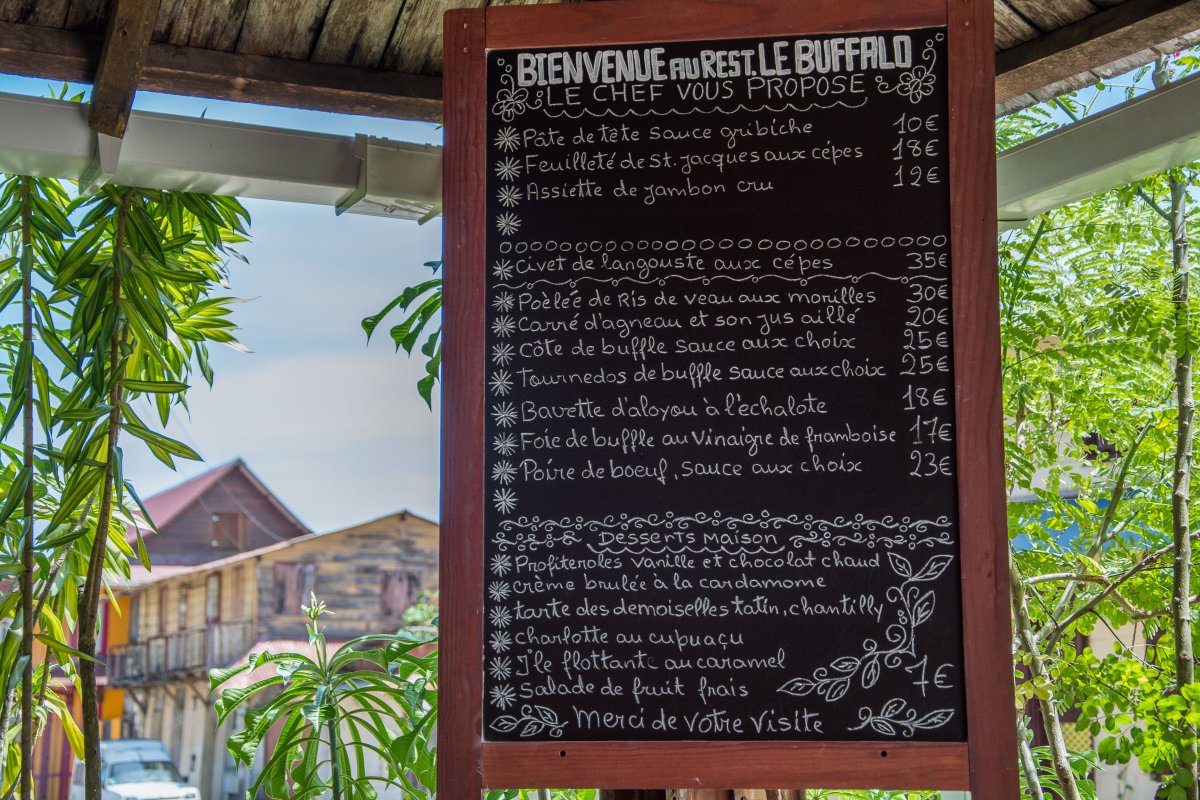 BIENVENUE AU REST. LE BUFFALO
LE CHEF VOUS PROPOSE
Pâte de tête sauce gribiche 10€
Feuilleté de St. Jacques aux cépes 18€
Assiette de jambon cru 12€
Civet de langouste aux cépes 35€
Poèlée de Ris de veau aux morilles 30€
Carré d'agneau et son jus aillé 20€
Côte de buffle sauce aux choix 25€
Tournedos de buffle sauce aux choix 25€
Bavette d'aloyou à l'echalote 18€
Foie de buffle au Vinaigre de framboise 17€
Poire de boeuf, sauce aux choix 23€
Desserts Maison
Profiteroles vanille et chocolat chaud
Crème brulée à la cardamome
tarte des demoiselles tatin, chantilly
charlotte au cupuaçu
J'le flottante au caramel
Salade de fruit frais 7€
Merci de votre Visite